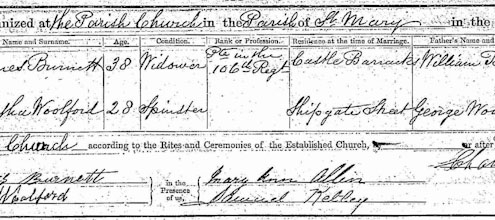 nized at the Parish Church in the Parish of St. Mary in the
Name and Surname. Age. Condition. Rank or Profession. Residence at the time of Marriage. Father's Name and
mes Burnett 38 Widower Pte in the 106th Regt Castle Barracks William
tha Woolford 28 Spinster Shipgate Street George Woo
Church according to the Rites and Ceremonies of the Established Church, or after
Burnett In the Presence of us, Mary Ann Allin
Woolford Samuel